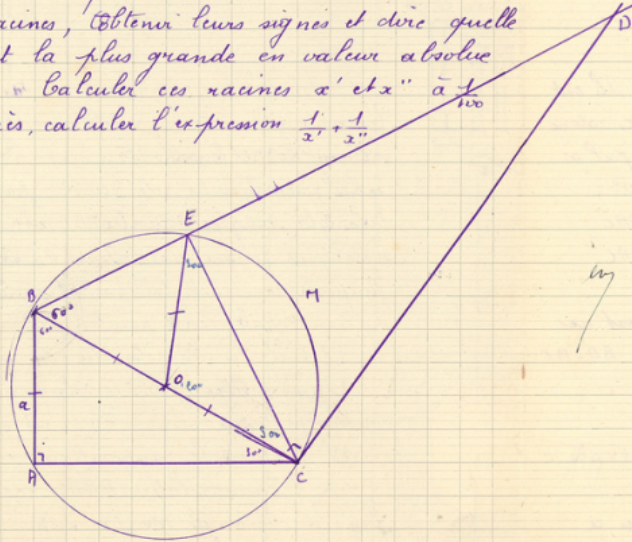 racines, obtenir leurs signes et dire quelle
t la plus grande en valeur absolue
Calculer ces racines x' et x'' à 1/100
ès, calculer l'expression 1/x' + 1/x''
D
E
30°
M
B
60°
60°
O
120°
a
30°
30°
A
C